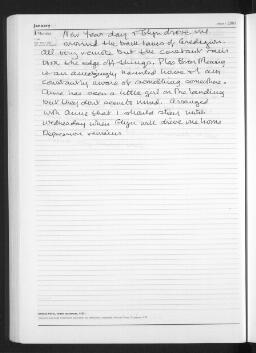 January
New Year day & Glyn drove me
around the back lanes of Ceredigion.
All very remote but the constant rain
took the edge off things. Plas Bron Meurig
is an amazingly haunted house & I am
constantly aware of something somewhere.
Anne has seen a little girl on the landing
but they don't seem to mind. Arranged
with Anne that I should stay until
Wednesday when Glyn will drive me home
Depression remains